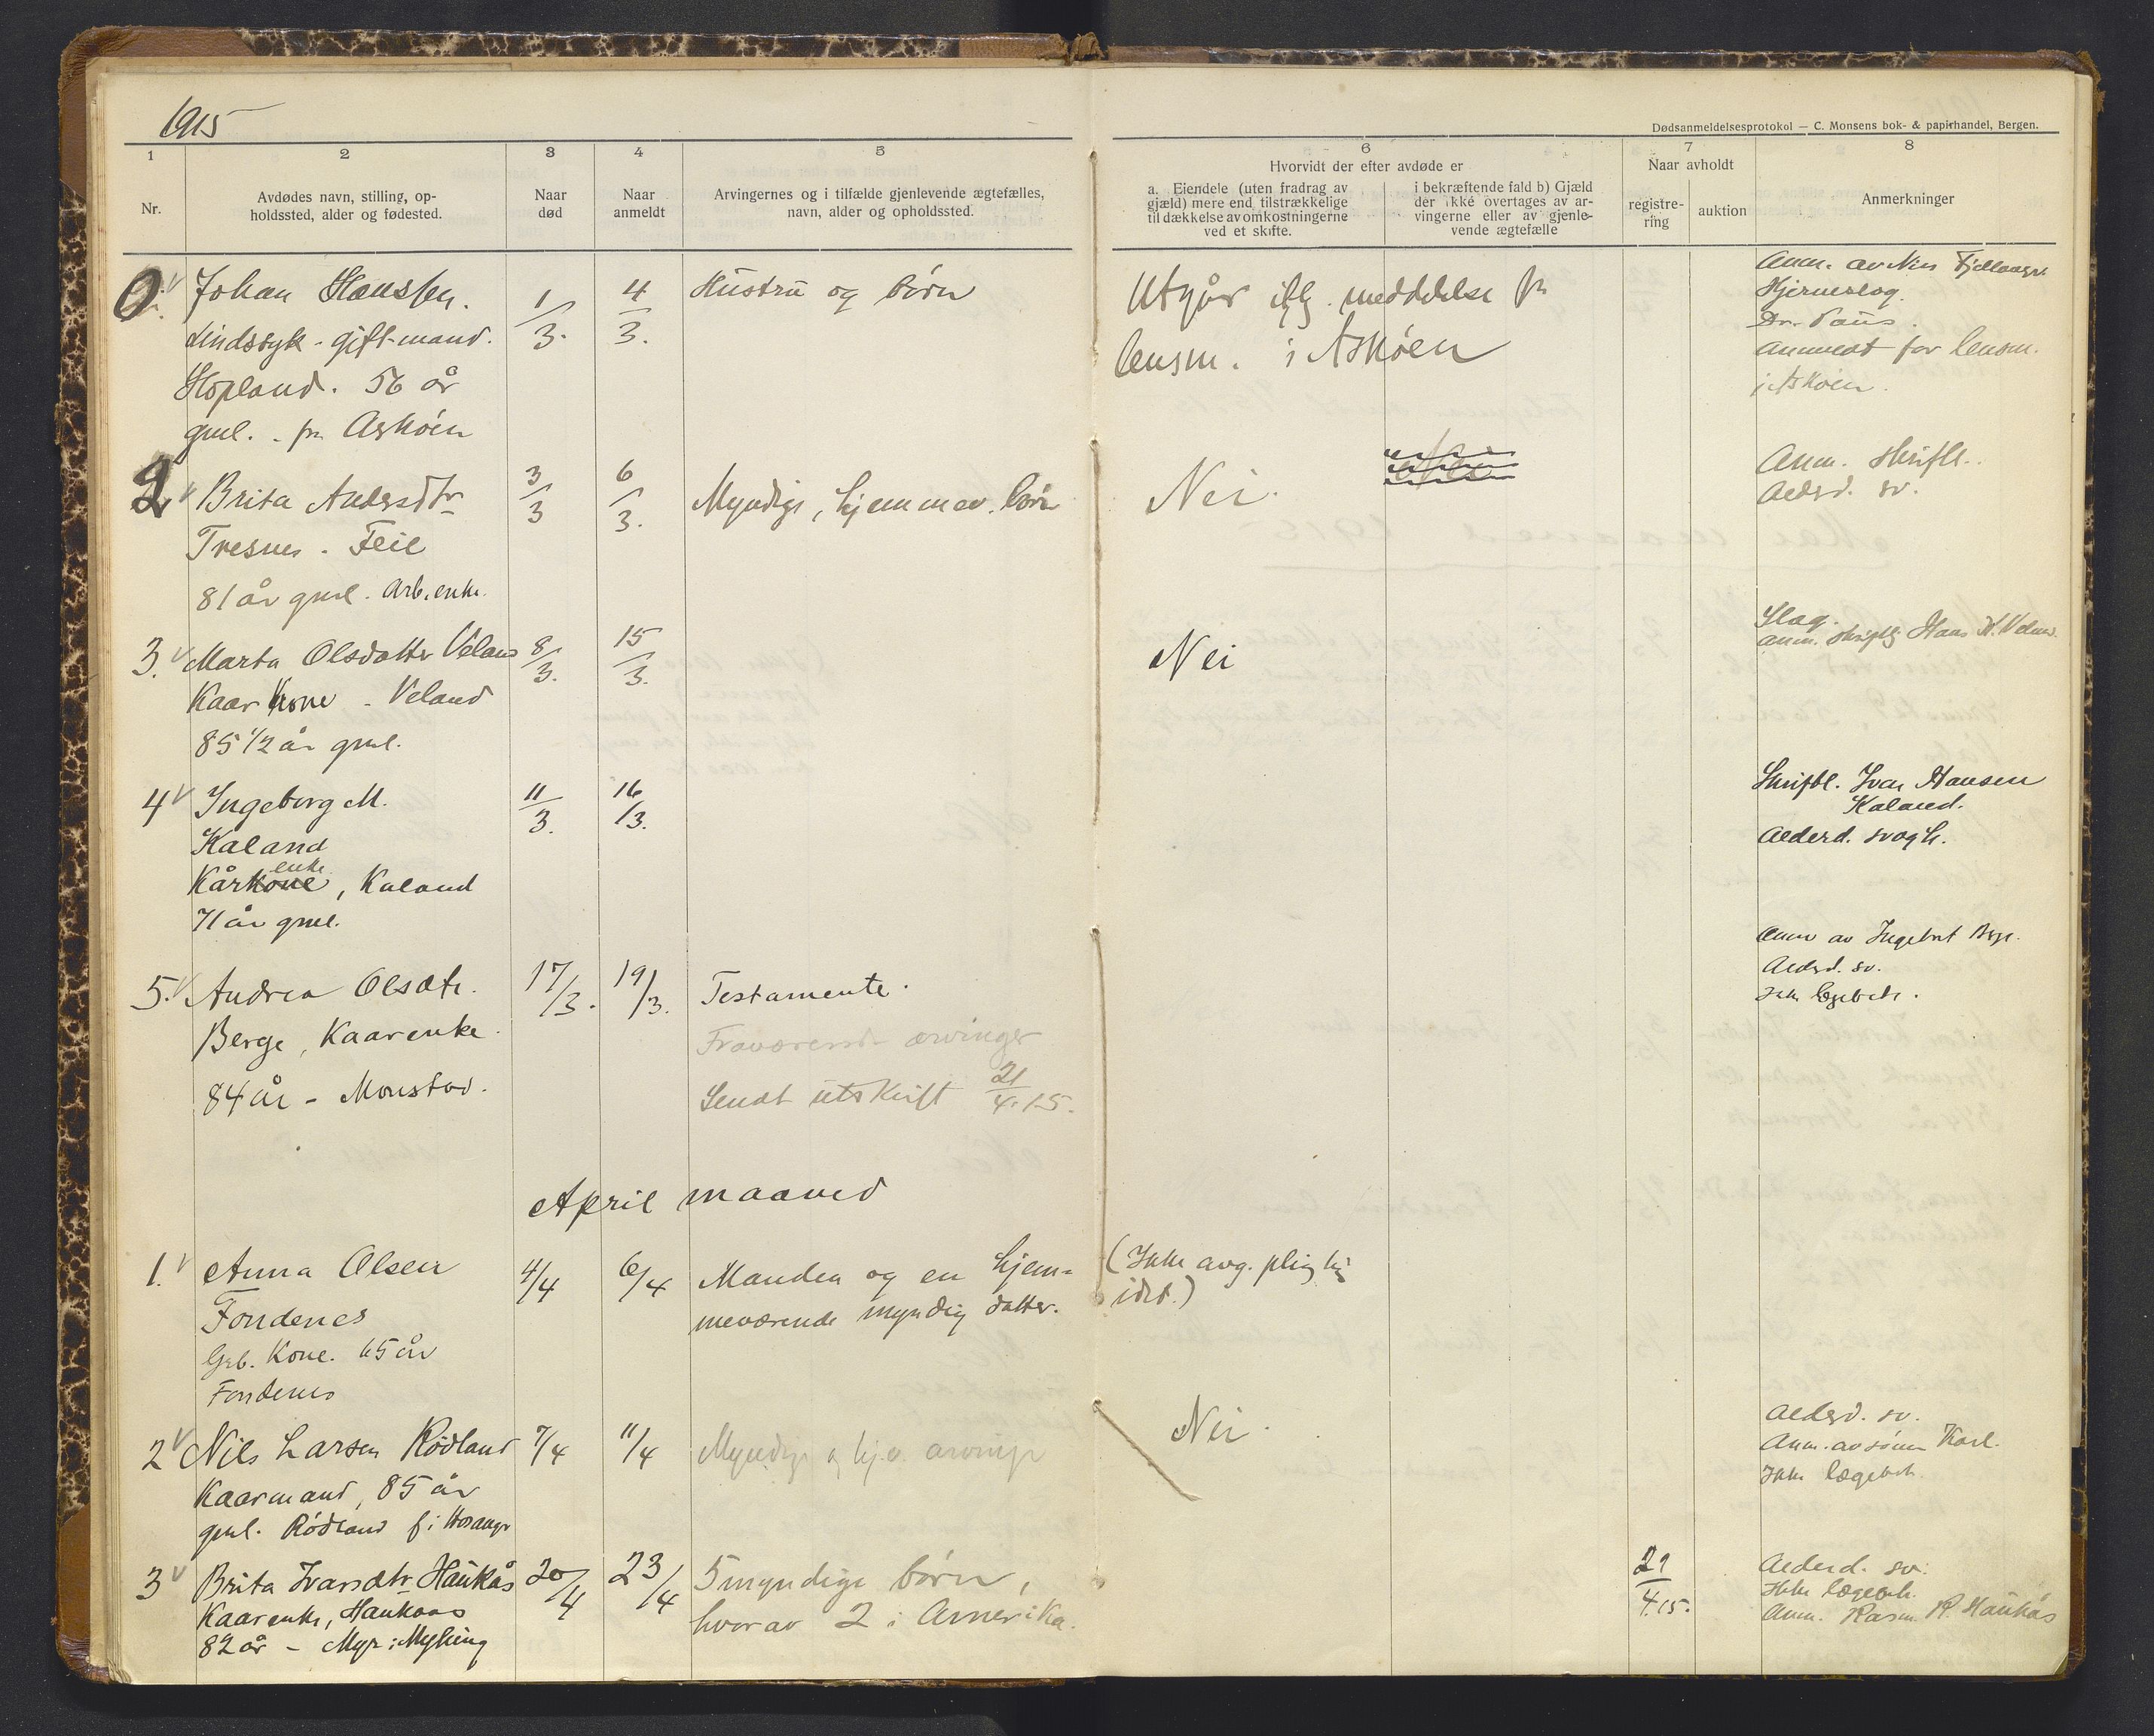 1915
Dødsanmeldelsesprotokol — C. Monsens bok- & papirhandel, Bergen.
1
2
3
4
5
6
7
8
Nr.
Avdødes navn, stilling, op-
holdssted, alder og fødested.
Naar
død
Naar
anmeldt
Arvingernes og i tilfælde gjenlevende ægtefælles,
navn, alder og opholdssted.
Hvorvidt der efter avdøde er
a. Eiendele (uten fradrag av
gjæld) mere end tilstrækkelige
til dækkelse av omkostningerne
ved et skifte.
i bekræftende fald b) Gjæld
der ikke overtages av ar-
vingerne eller av gjenle-
vende ægtefælle
Naar avholdt
registre-
ring
auktion
Anmerkninger
0 Johan Hanssen. 1/3. 4/3. Hustru og børn
Sindssyk - gift mand.
Hopland. 56 år
gml. - fr. Askøen
Utgår iflg. meddelelse fr
lensm. i Askøen
Anm. av Nils
anmeldt for lensm.
i Askøen.
2 Brita Andersdtr 3/3 6/3. Myndige, hjemmev. børn Nei.
Tresnes - Feie
81 år gml. Arb.enke.
Anm. skriftl.
Aldersd. sv.
3. Marta Olsdatter Veland 8/3. 15/3. Nei
Kaarkone - Veland
85 1/2 år gml.
Slag.
anm. skriftlig Hans K. Veland
4 Ingeborg M. 11/3. 16/3.
Kaland
enke
Kårkone, Kaland
71 år gml.
Skriftl. Ivar Hansen
Kaland.
Alderd. svagh.
5. Andrea Olsdtr. 17/3. 19/3. Testamente.
Berge, Kaarenke. Fraværende arvinger
84 år - Monstad. Sendt utskrift 21/4.15.
Anm av Ingebrt Berge.
Aldersd. sv.
Ikke lægebeh.
April maaned
1. Anna Olsen 4/4 6/4 Manden og en hjem- (Ikke avg. pligtig
Fondenes meværende myndig datter. idet.)
Grb. Kone. 65 år
Fondenes
2 Nils Larsen Rödland 7/4 11/4 Myndige og hj.v. arvinger Nei.
Kaarmand, 85 år
gml. Rödland f. i Hosanger
Aldersd. sv.
Anm. av sønen Karl.
Ikke lægebeh.
3 Brita Ivarsdtr Haukås 20/4 23/4 5 myndige børn,
Kaarenke, Haukaas hvorav 2 i Amerika.
82 år - Myr i Myking
29/4.15.
Alderd. sv.
Ikke lægebeh.
Anm. Rasm. R. Haukås